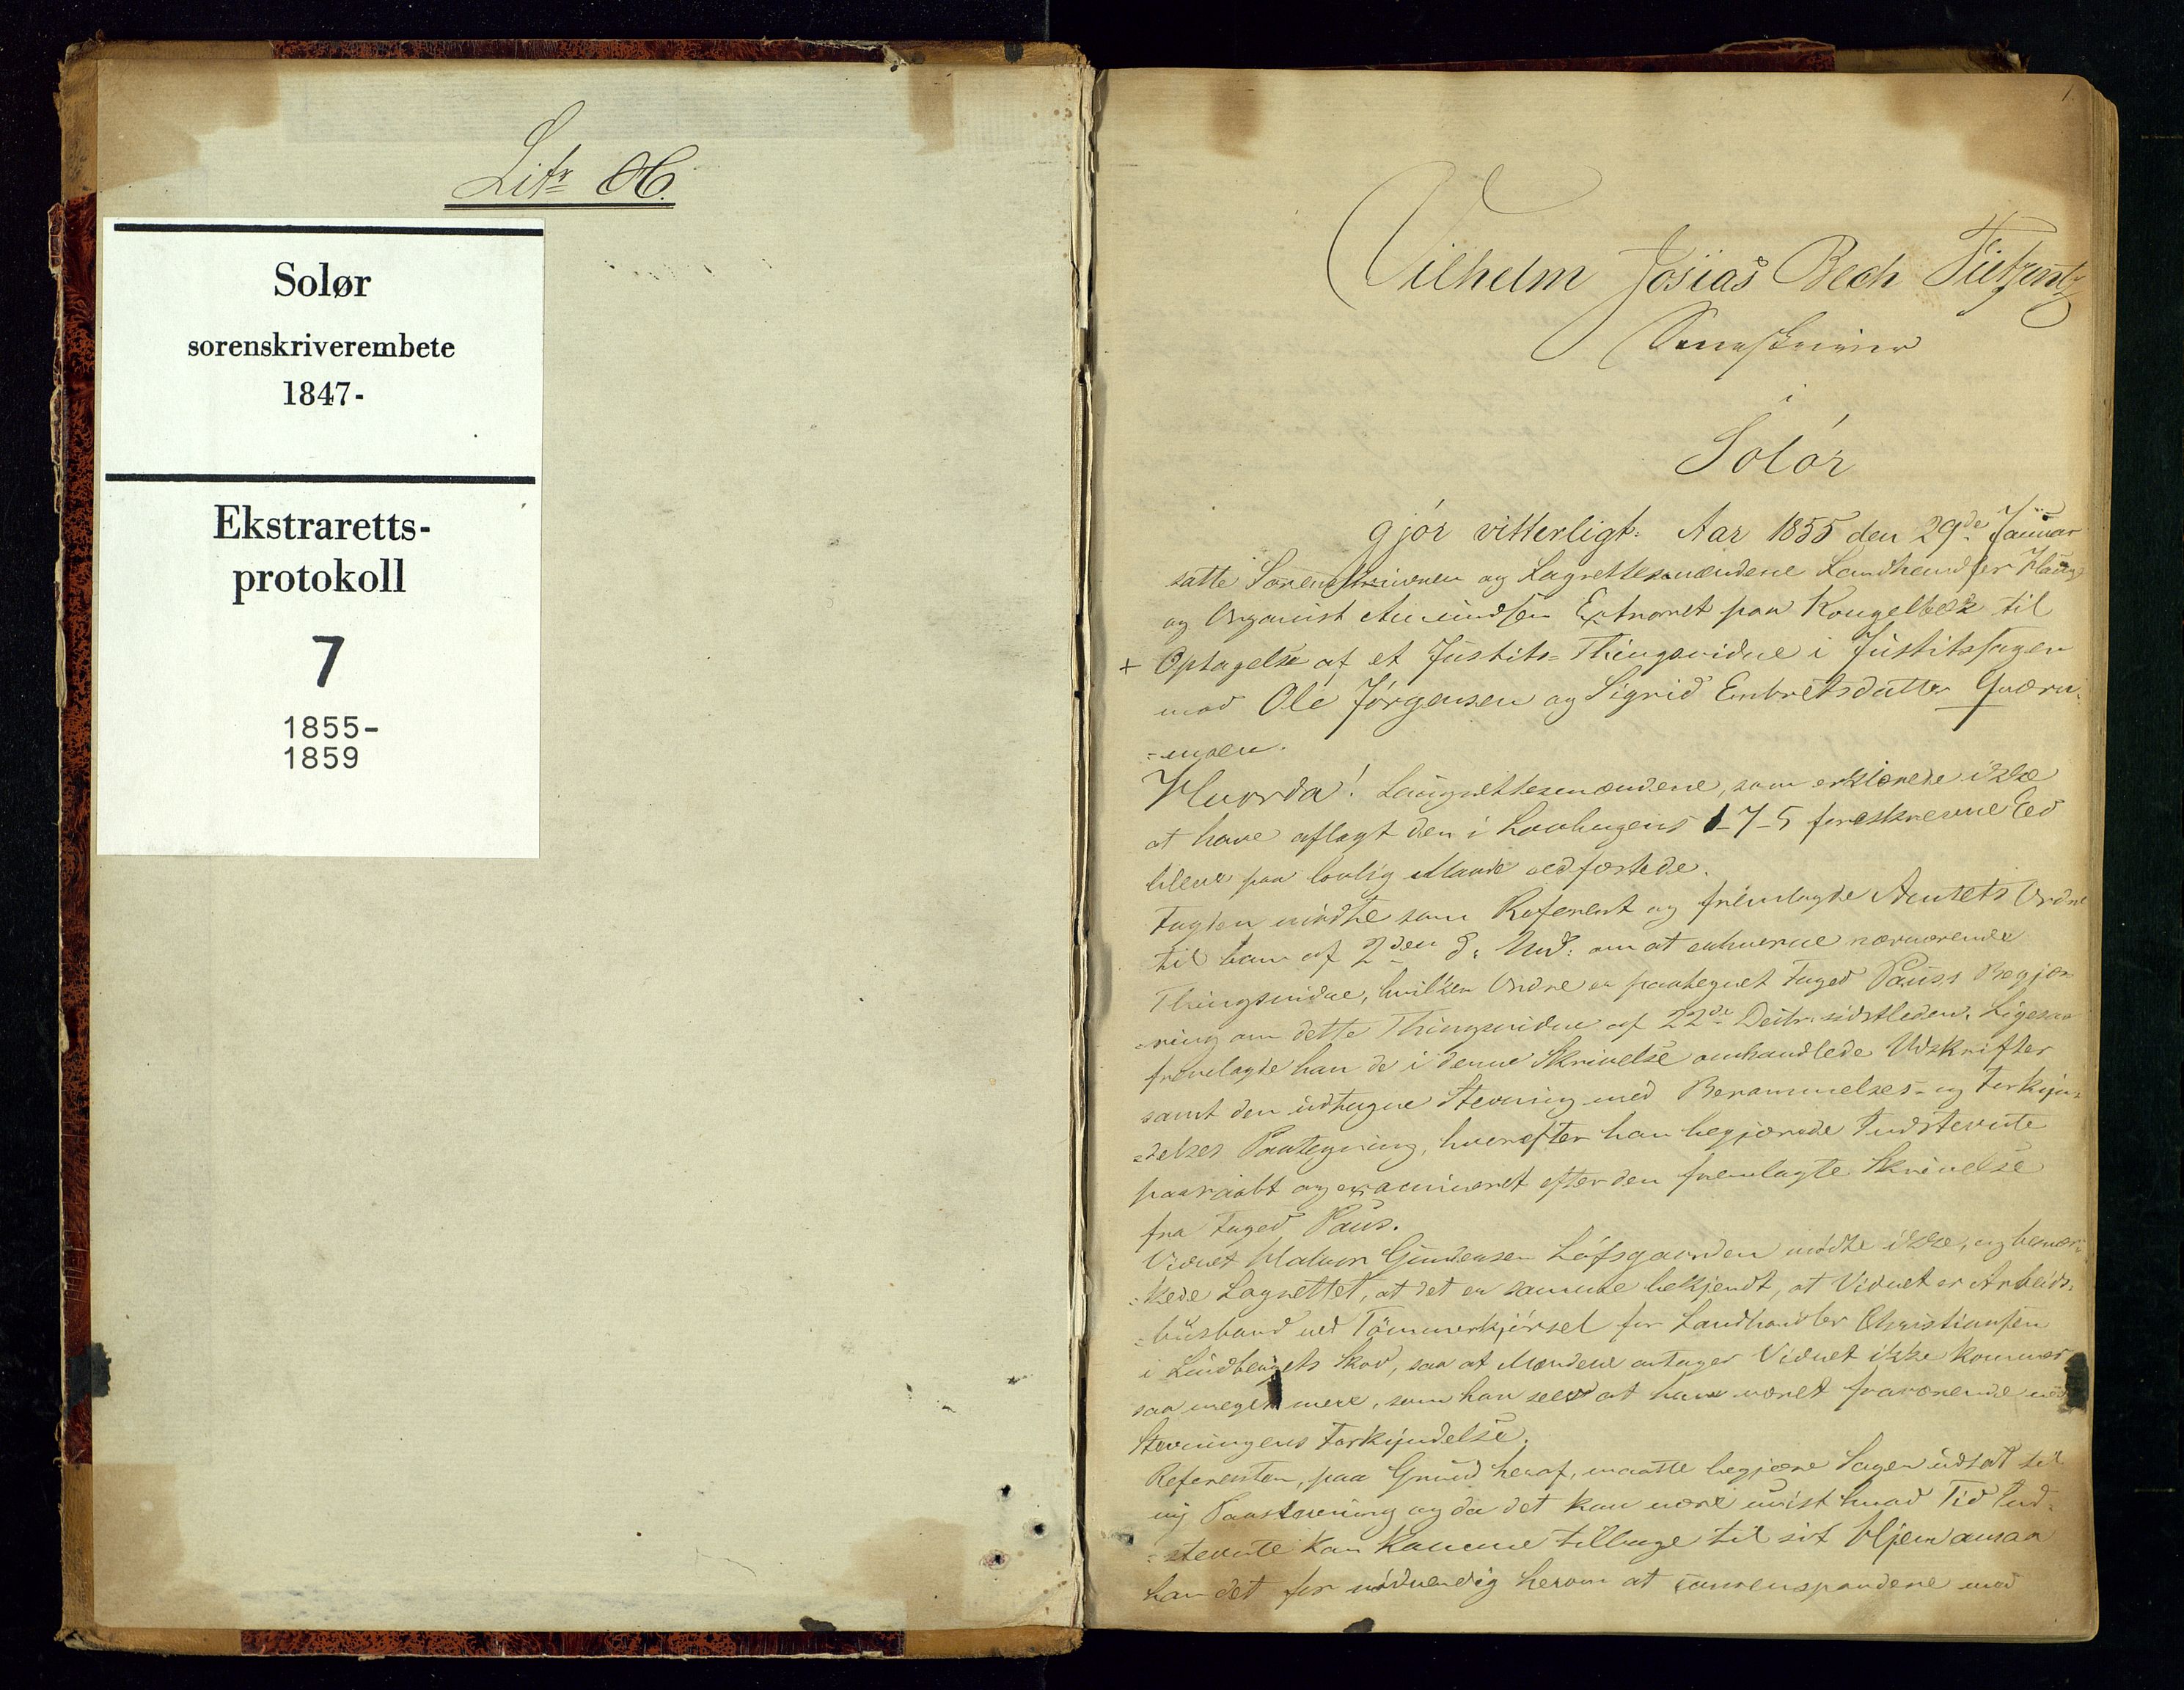 Litr H.
Solør
sorenskriverembete
1847-
Ekstraretts-
protokoll
7
1855-
1859
1.
Vilhelm Josias Bech
Sorenskriver
i
Solór
gjór vitterligt: Aar 1855 den 29de Januar
satte Sorenskriveren og Lagrettesmændene Landhandler Haug
og Organist Amundsen Extraret paa Kongelbek til
+ Optagelse af et Justits-Thingsvidne i Justitssagen
mod Ole Jörgensen og Sigrid Embretsdatter Qværn-
=moen.
Hvorda! Laugrettesmændene, som erklærede ikke
at have aflagt den i Lovbogens 1-7-5 foreskrevne Eed
bleve paa lovlig Maade edfæstede.
Fogden mödte som Referent og fremlagde Amtets Ordre
til ham af 2den d: Md: om at erhverve nærværende
Thingsvidne, hvilken Ordre er paategnet Foged Pauss Begjæ-
=ring om dette Thingsvidne af 22de Decbr. sidstleden. Ligesaa
fremlagde han de i denne Skrivelse omhandlede Udskrifter
samt den udtagne Stevning med Berammelses- og Forkyn-
=delses Paategning, hvorefter han begjærede Indstevnte
paaraabt og examineret efter den fremlagte Skrivelse
fra Foged Paus.
Vidnet Halvor Gundersen Löfsgaarden mödte ikke, og bemær-
=kede Lagrettet, at det er samme bekjendt, at Vidnet er Arbeids-
=husbond ved Tömmerkjörsel for Landhandler Christiansen
i Lindbergets Skov, saa at Mændene antager Vidnet ikke kommer
saa meget mere, som han sees at have været fraværende ved
Stevningens Forkyndelse.
Referenten, paa Grund heraf, maatte begjære Sagen udsat til
ny Paastevning og da det kan være uvist hvad Tid Ind-
=stevnte kan komme tilbage til sit Hjem ansaa
han det for nödvendig herom at correspondere med